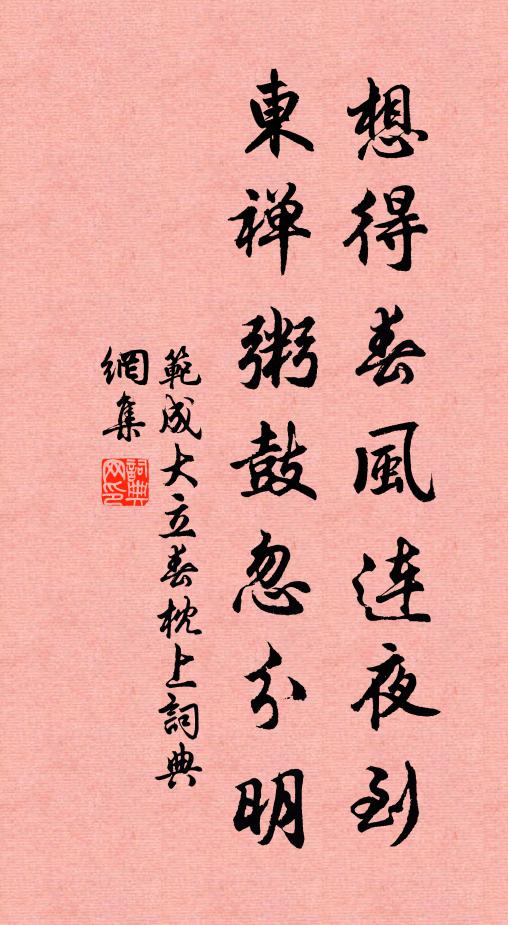 想得春風连夜到
東禅粥鼓忽分明
範成大立春枕上詞典
網集
詞典
网印